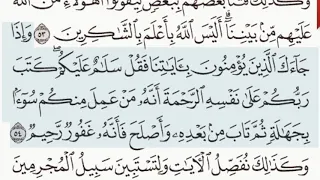 وَكَذَٰلِكَ فَتَنَّا بَعْضَهُم بِبَعْضٍ لِّيَقُولُوٓا۟ أَهَٰٓؤُلَآءِ مَنَّ ٱللَّهُ
عَلَيْهِم مِّنۢ بَيْنِنَآ ۗ أَلَيْسَ ٱللَّهُ بِأَعْلَمَ بِٱلشَّٰكِرِينَ ٥٣ وَإِذَا
جَآءَكَ ٱلَّذِينَ يُؤْمِنُونَ بِـَٔايَٰتِنَا فَقُلْ سَلَٰمٌ عَلَيْكُمْ ۖ كَتَبَ
رَبُّكُمْ عَلَىٰ نَفْسِهِ ٱلرَّحْمَةَ ۖ أَنَّهُۥ مَنْ عَمِلَ مِنكُمْ سُوٓءًۢا
بِجَهَٰلَةٍ ثُمَّ تَابَ مِنۢ بَعْدِهِۦ وَأَصْلَحَ فَأَنَّهُۥ غَفُورٌ رَّحِيمٌ ٥٤
وَكَذَٰلِكَ نُفَصِّلُ ٱلْـَٔايَٰتِ وَلِتَسْتَبِينَ سَبِيلُ ٱلْمُجْرِمِينَ